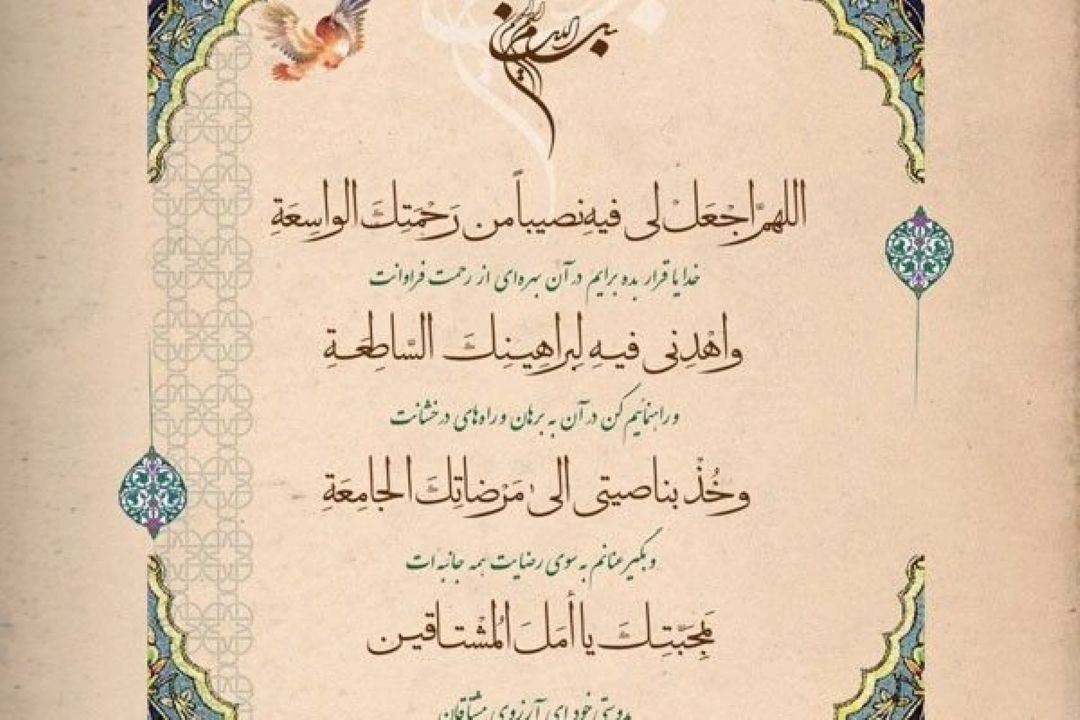 بسم الله الرحمن الرحیم
اللهمَّ اجْعَل لی فیهِ نصیباً من رَحْمَتِكَ الواسِعَةِ
خدایا قرار بده برایم در آن بهره‌ای از رحمت فراوانت
واهْدِنی فیهِ لِبراهِینِكَ السَّاطِعَةِ
و راهنمائیم کن در آن به برهان و راه‌های درخشانت
وخُذْ بناصیتی الیٰ مَرْضاتِكَ الجامِعَةِ
و بگیر عنانم به سوی رضایت همه جانبه ات
بِمَحَبَّتِكَ یا أمَلَ المُشْتاقین
بدوستی خود ای آرزوی مشتاقان